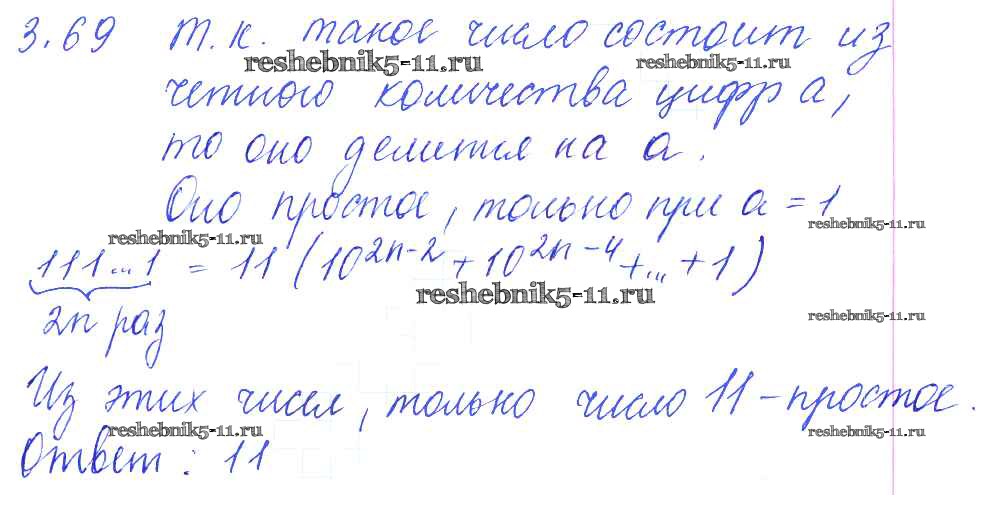 3.69 т.к. такое число состоит из
reshebnik5-11.ru reshebnik5-11.ru
четного количества цифр а,
то оно делится на а.
Оно простое, только при а = 1
reshebnik5-11.ru reshebnik5-11.ru
111...1 = 11 (10^{2n-2} + 10^{2n-4} + ... + 1)
reshebnik5-11.ru
2n раз
reshebnik5-11.ru
Из этих чисел, только число 11 – простое.
reshebnik5-11.ru reshebnik5-11.ru
Ответ: 11